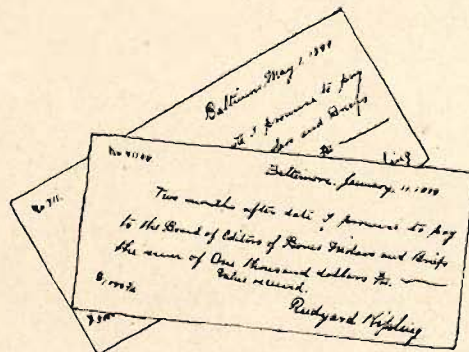 Baltimore, May 1, 1899
I promise to pay
and Briefs
ling
No 711.
No 41144
Baltimore, January, 11, 1899
Two months after date I promise to pay
to the Board of Editors of Bones Molars and Briefs
the sum of One thousand dollars
Value received.
Rudyard Kipling